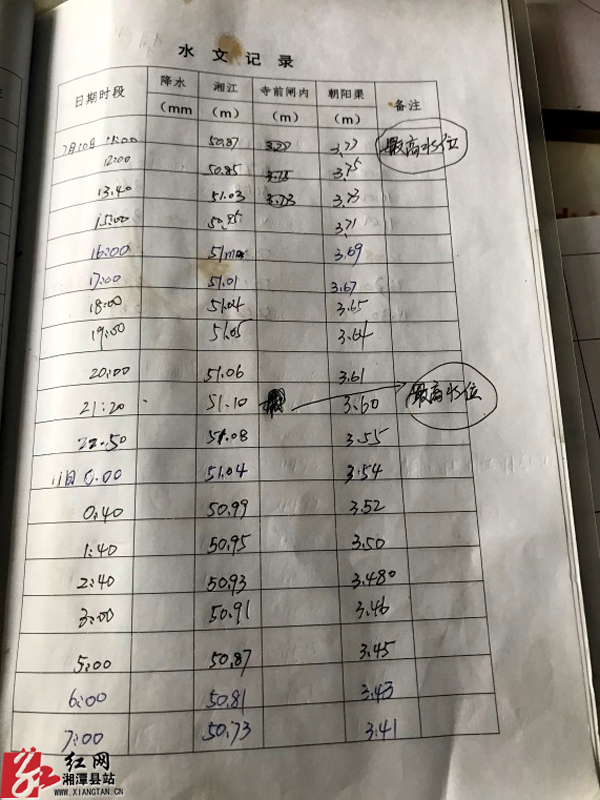 水文记录
日期时段 降水（mm 湘江（m） 寺前闸内（m） 朝阳渠（m） 备注
7月10日 11:00 50.87 3.77 3.77 最高水位
12:00 50.85 3.75 3.75
13:40 51.03 3.73 3.73
15:00 3.71
16:00 3.69
17:00 51.01 3.67
18:00 51.04 3.65
19:00 51.05 3.64
20:00 51.06 3.61
21:20 51.10 3.60 最高水位
22:50 51.08 3.55
11日 0:00 51.04 3.54
0:40 50.99 3.52
1:40 50.95 3.50
2:40 50.93 3.480
3:00 50.91 3.46
5:00 50.87 3.45
6:00 50.81 3.43
7:00 50.73 3.41
红网
湘潭县站
WWW.XIANGTAN.CN